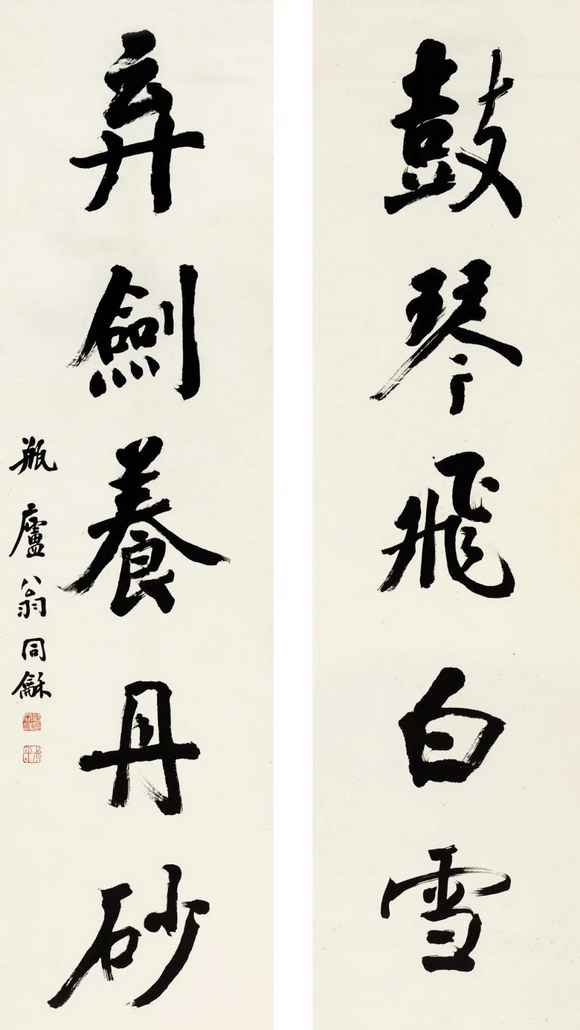 鼓琴飛白雪
弃劍養丹砂
瓶廬翁同龢